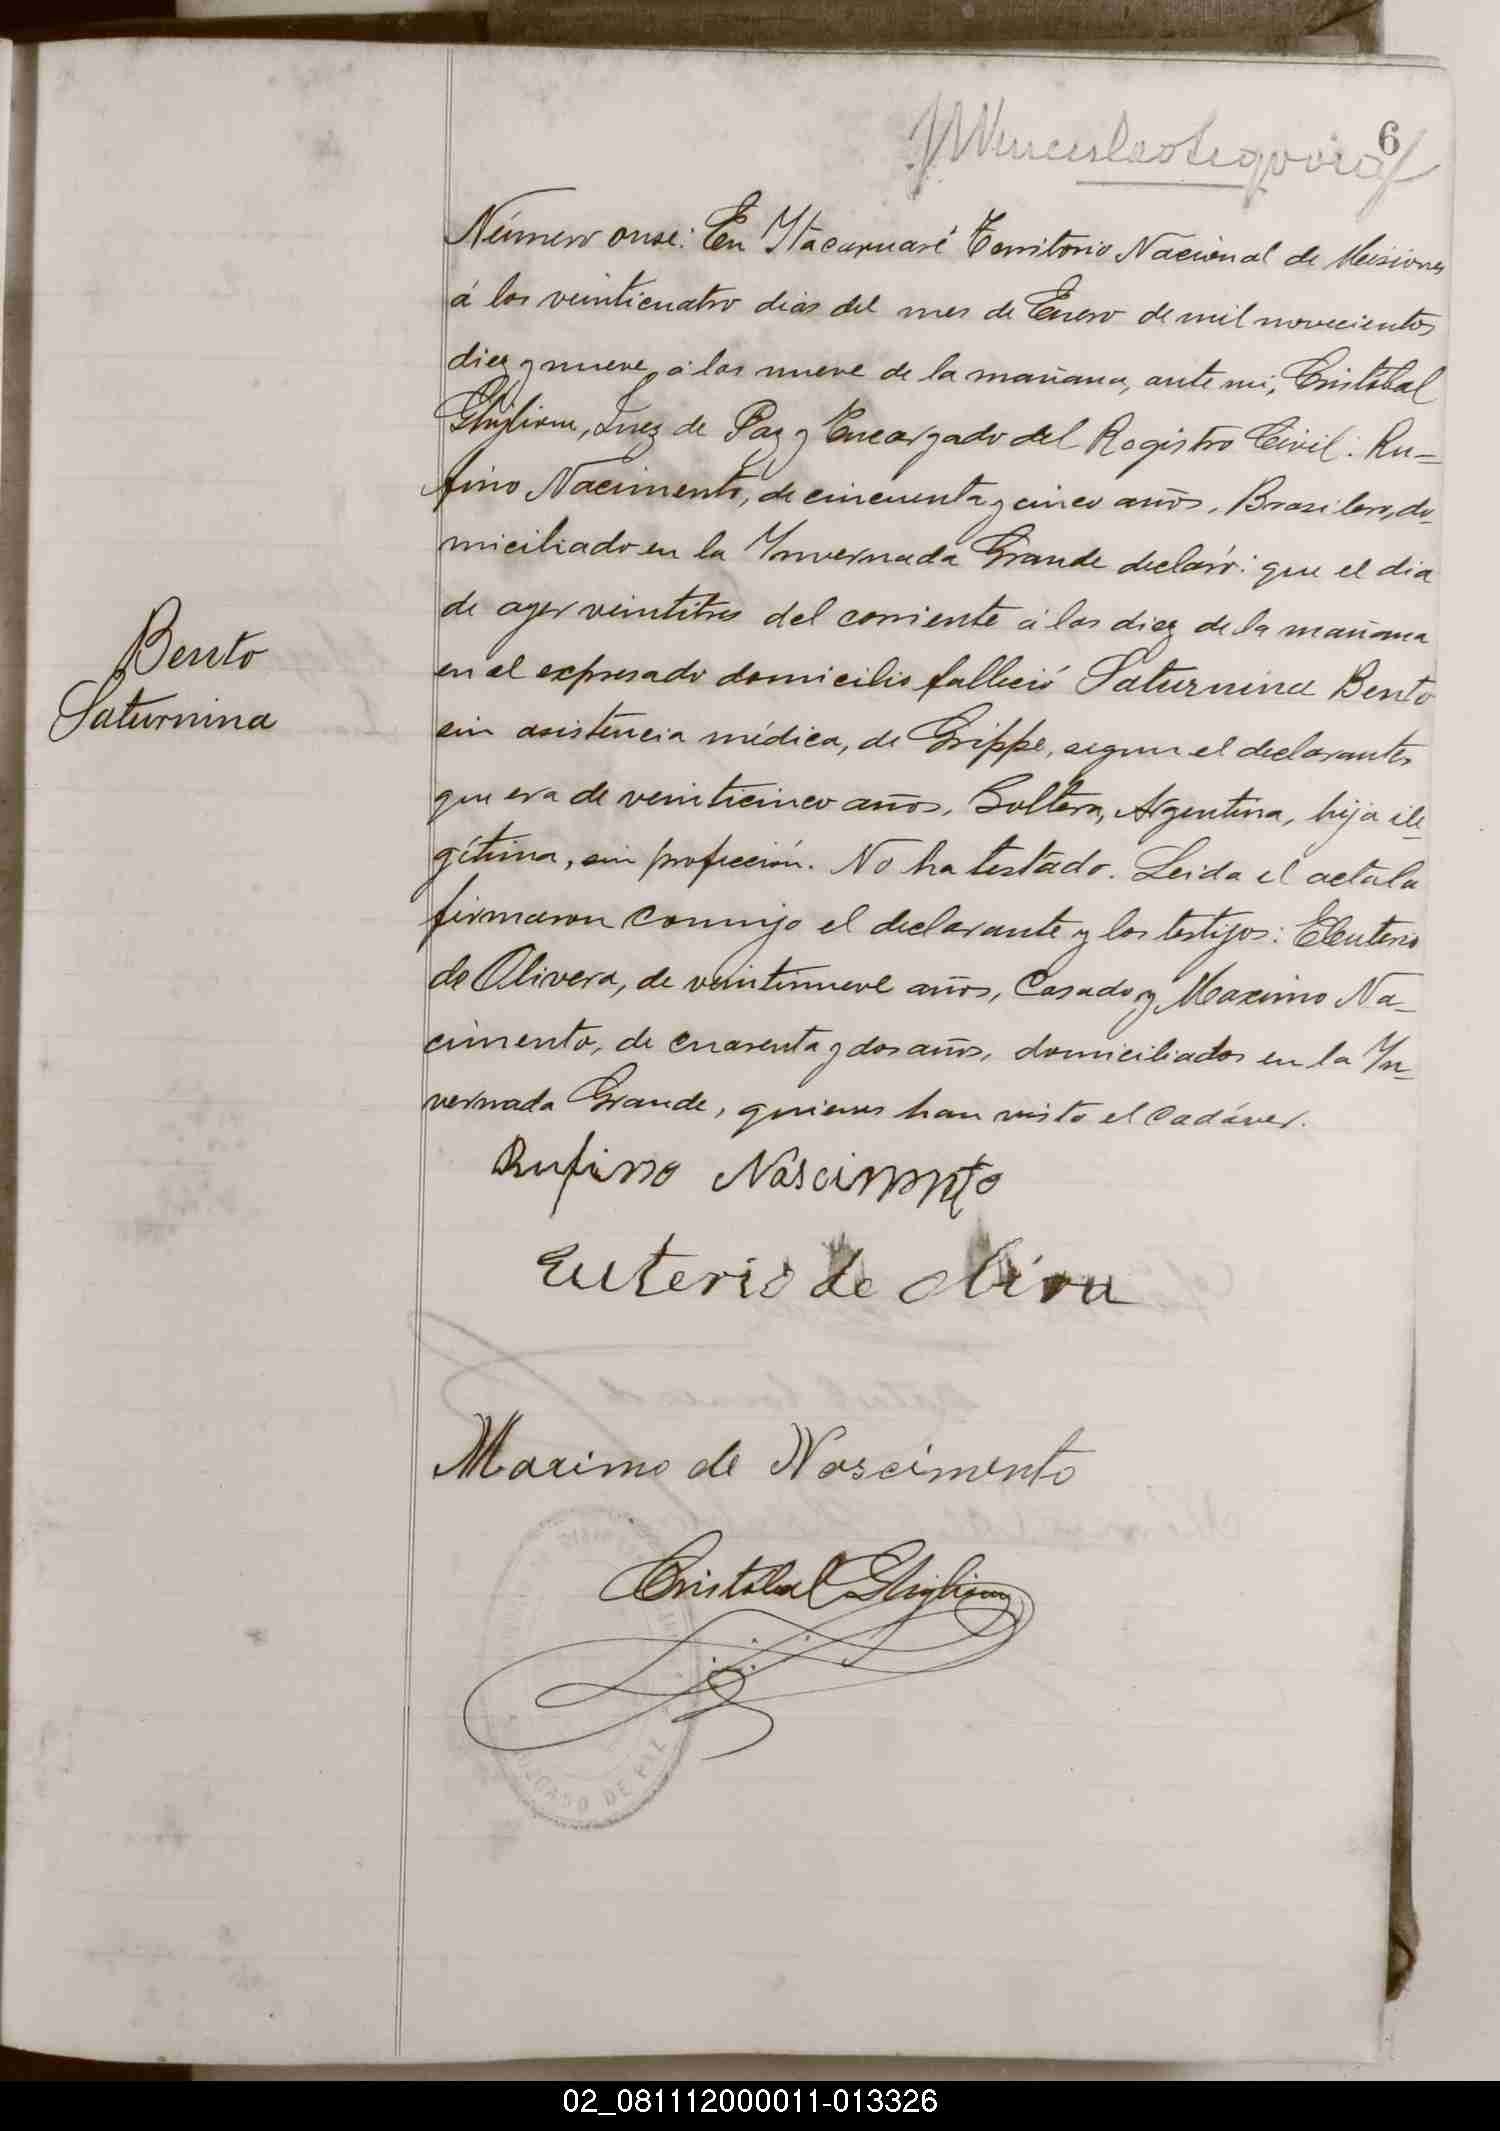 6
Número onse: En Ytacaruaré Territorio Nacional de Misiones
á los veinticuatro dias del mes de Enero de mil novecientos
diez y nueve, a las nueve de la mañana, ante mi, Cristóbal
Ghiglione, Juez de Paz y Encargado del Registro Civil: Ru=
fino Nacimento, de cincuenta y cinco años, Brasilero, do-
miciliado en la Ynvernada Grande declaró: que el dia
de ayer veintitres del corriente á las diez de la mañana
en el expresado domicilio falleció Saturnina Bento
Bento
Saturnina
sin asistencia médica, de Grippe, segun el declarante,
que era de veinticinco años, Soltera, Argentina, hija ile-
gítima, sin profección. No ha testado. Leida el acta la
firmaron conmigo el declarante y los testigos: Eleuterio
de Olivera, de veintinueve años, Casado, y Maximo Na-
cimento, de cuarenta y dos años, domiciliados en la Yn-
vernada Grande, quienes han visto el Cadáver.
Rufino Nascimento
Euterio de
Maximo de Nascimento
Cristóbal Ghiglione
JUZGADO DE PAZ
02_081112000011-013326